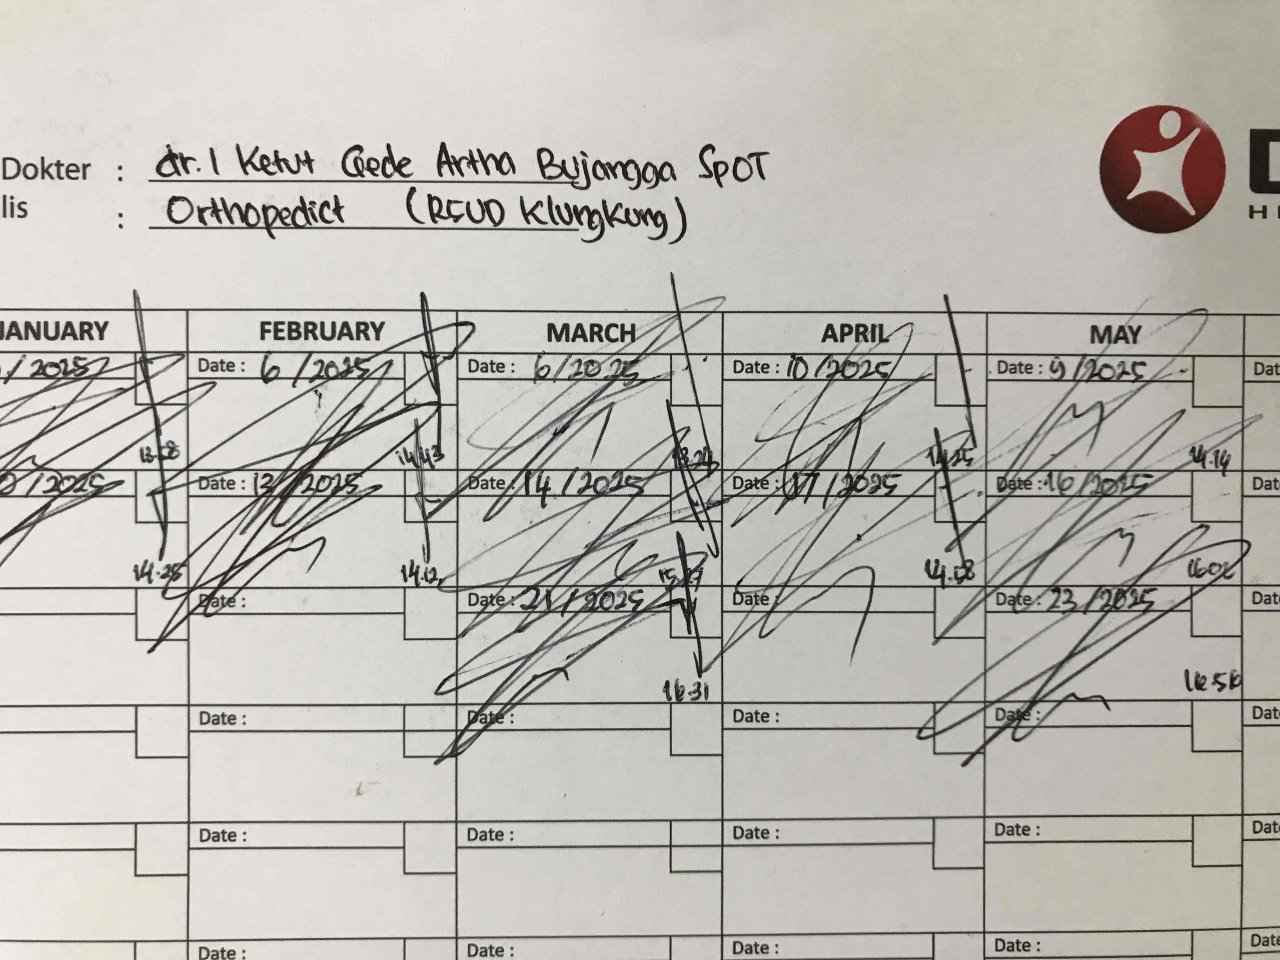 Dokter : dr. I Ketut Gede Artha Bujangga SpOT
lis : Orthopedict (RSUD Klungkung)
D
H
JANUARY FEBRUARY MARCH APRIL MAY
/2025 Date : 6 /2025 Date : 6/2025 Date : 10/2025 Date : 9/2025 Dat
13.58 14.43 14.25 14.14
/2025 Date : 13/2025 Date : 14/2025 Date : 17/2025 Date : 16/2025 Dat
14.25 14.12 15.27 14.58 16.02
Date : Date : 21/2025 Date : Date : 23/2025 Dat
16.31 16.56
Date : Date : Date : Date : Dat
Date : Date : Date : Date : Dat
Date : Date : Date : Date : Dat